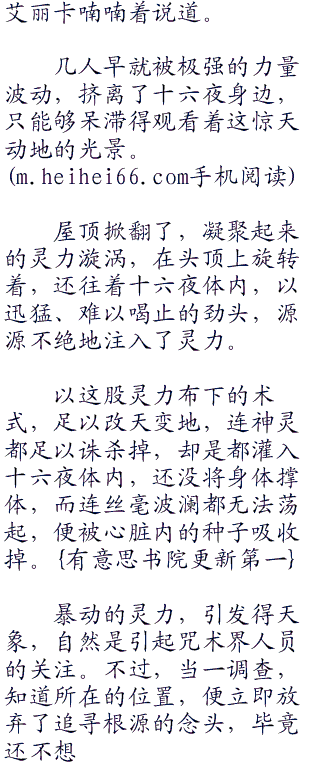 艾丽卡喃喃着说道。
几人早就被极强的力量
波动，挤离了十六夜身边，
只能够呆滞得观看着这惊天
动地的光景。
(m.heihei66.com手机阅读)
屋顶掀翻了，凝聚起来
的灵力漩涡，在头顶上旋转
着，还往着十六夜体内，以
迅猛、难以喝止的劲头，源
源不绝地注入了灵力。
以这股灵力布下的术
式，足以改天变地，连神灵
都足以诛杀掉，却是都灌入
十六夜体内，还没将身体撑
体，而连丝毫波澜都无法荡
起，便被心脏内的种子吸收
掉。{有意思书院更新第一}
暴动的灵力，引发得天
象，自然是引起咒术界人员
的关注。不过，当一调查，
知道所在的位置，便立即放
弃了追寻根源的念头，毕竟
还不想